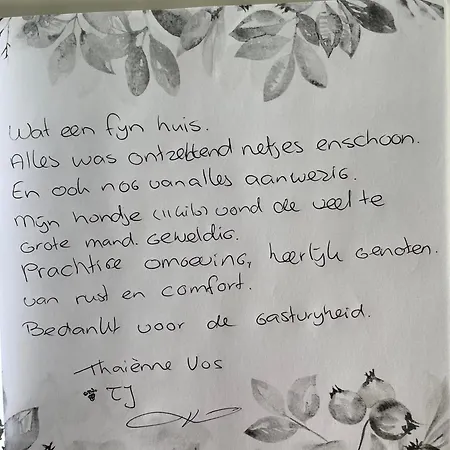 Wat een fijn huis.
Alles was ontzettend netjes enschoon.
En ook nog vanalles aanwezig.
Mijn hondje (11 kilo) vond de veel te
grote mand. Geweldig.
Prachtige omgeving, heerlijk genoten.
van rust en comfort.
Bedankt voor de gastvryheid.
Thaiènne Vos
TJ